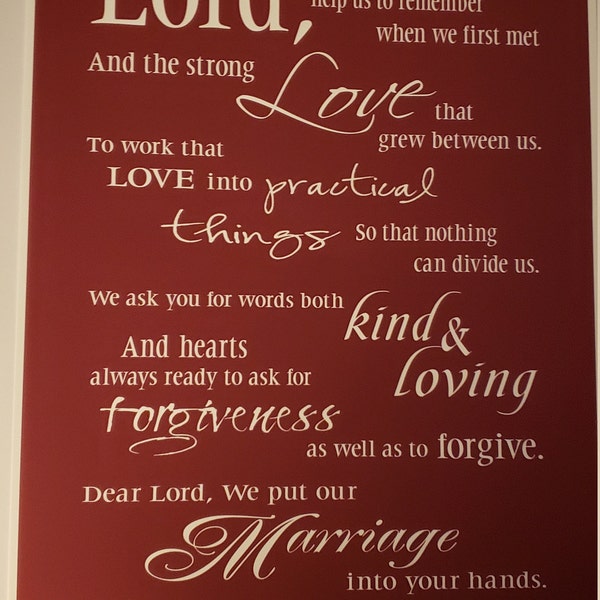 Lord, help us to remember
when we first met
And the strong Love that
grew between us.
To work that
LOVE into practical
things So that nothing
can divide us.
We ask you for words both kind &
And hearts loving
always ready to ask for
forgiveness
as well as to forgive.
Dear Lord, We put our
Marriage
into your hands.